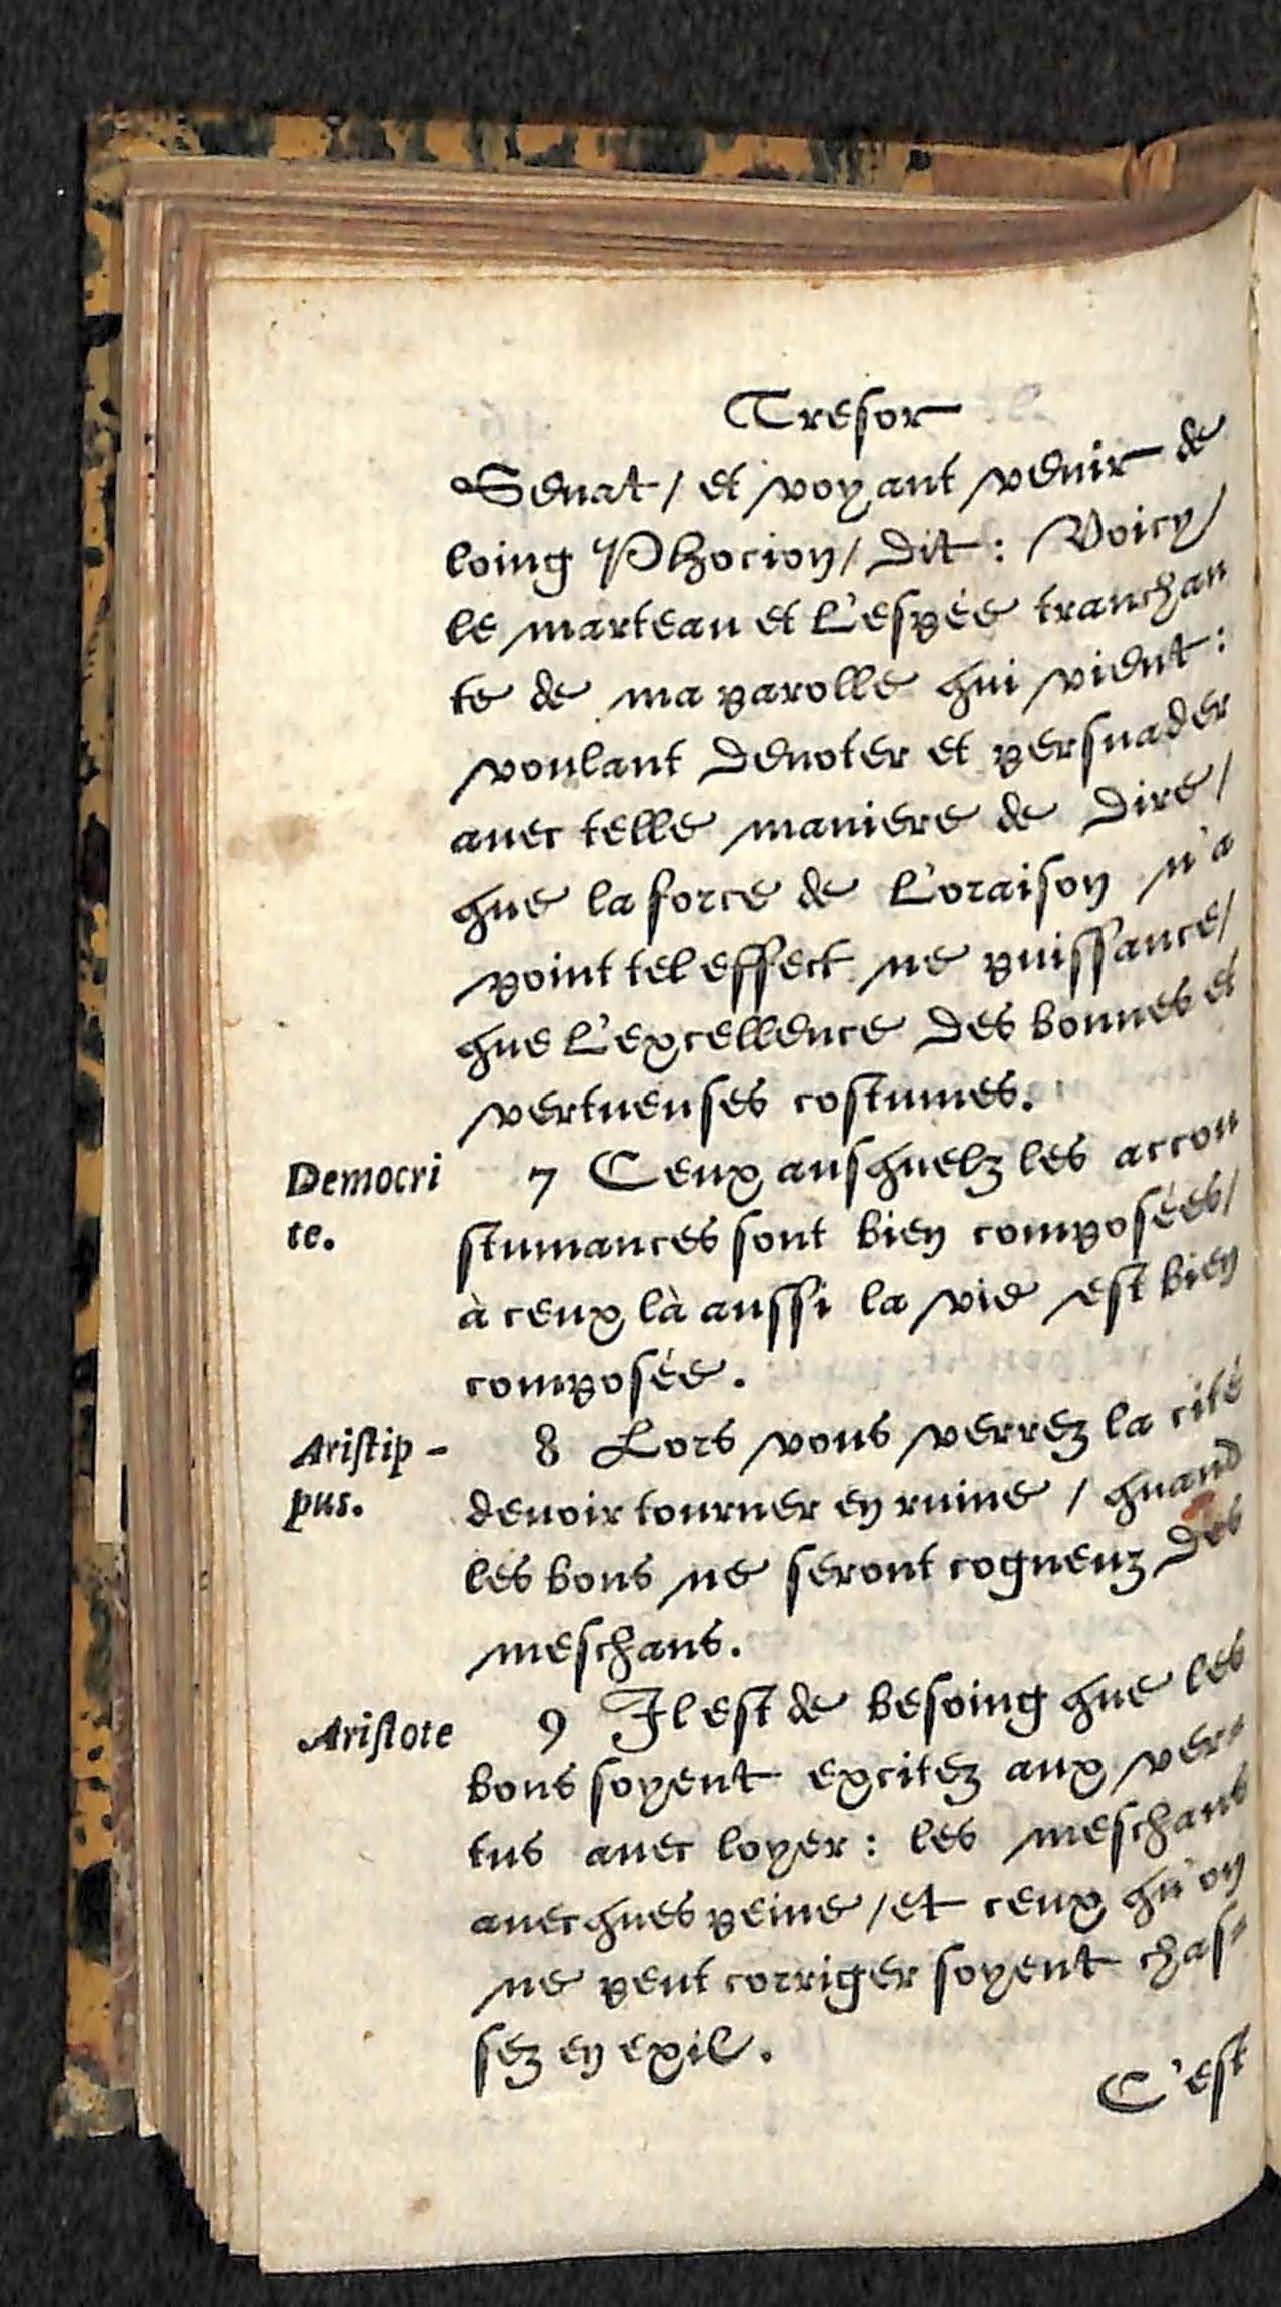 Tresor
Senat / et voyant venir de
loing Phocion / dit : Voicy /
le marteau et l'espée tranchan
te de ma parolle qui vient :
voulant denoter et persuader
auec telle maniere de dire /
que la force de l'oraison n'a
point tel effect ne puissance /
que l'excellence des bonnes et
vertueuses costumes.
Democri
te.
7 Ceux ausquelz les accou
stumances sont bien composées /
à ceux là aussi la vie est bien
composée.
Aristip-
pus.
8 Lors vous verrez la cité
deuoir tourner en ruine / quand
les bons ne seront cogneuz des
meschans.
Aristote
9 Il est de besoing que les
bons soyent excitez aux ver-
tus auec loyer : les meschans
auecques peine / et ceux qu'on
ne peut corriger soyent chas-
sez en exil.
C'est